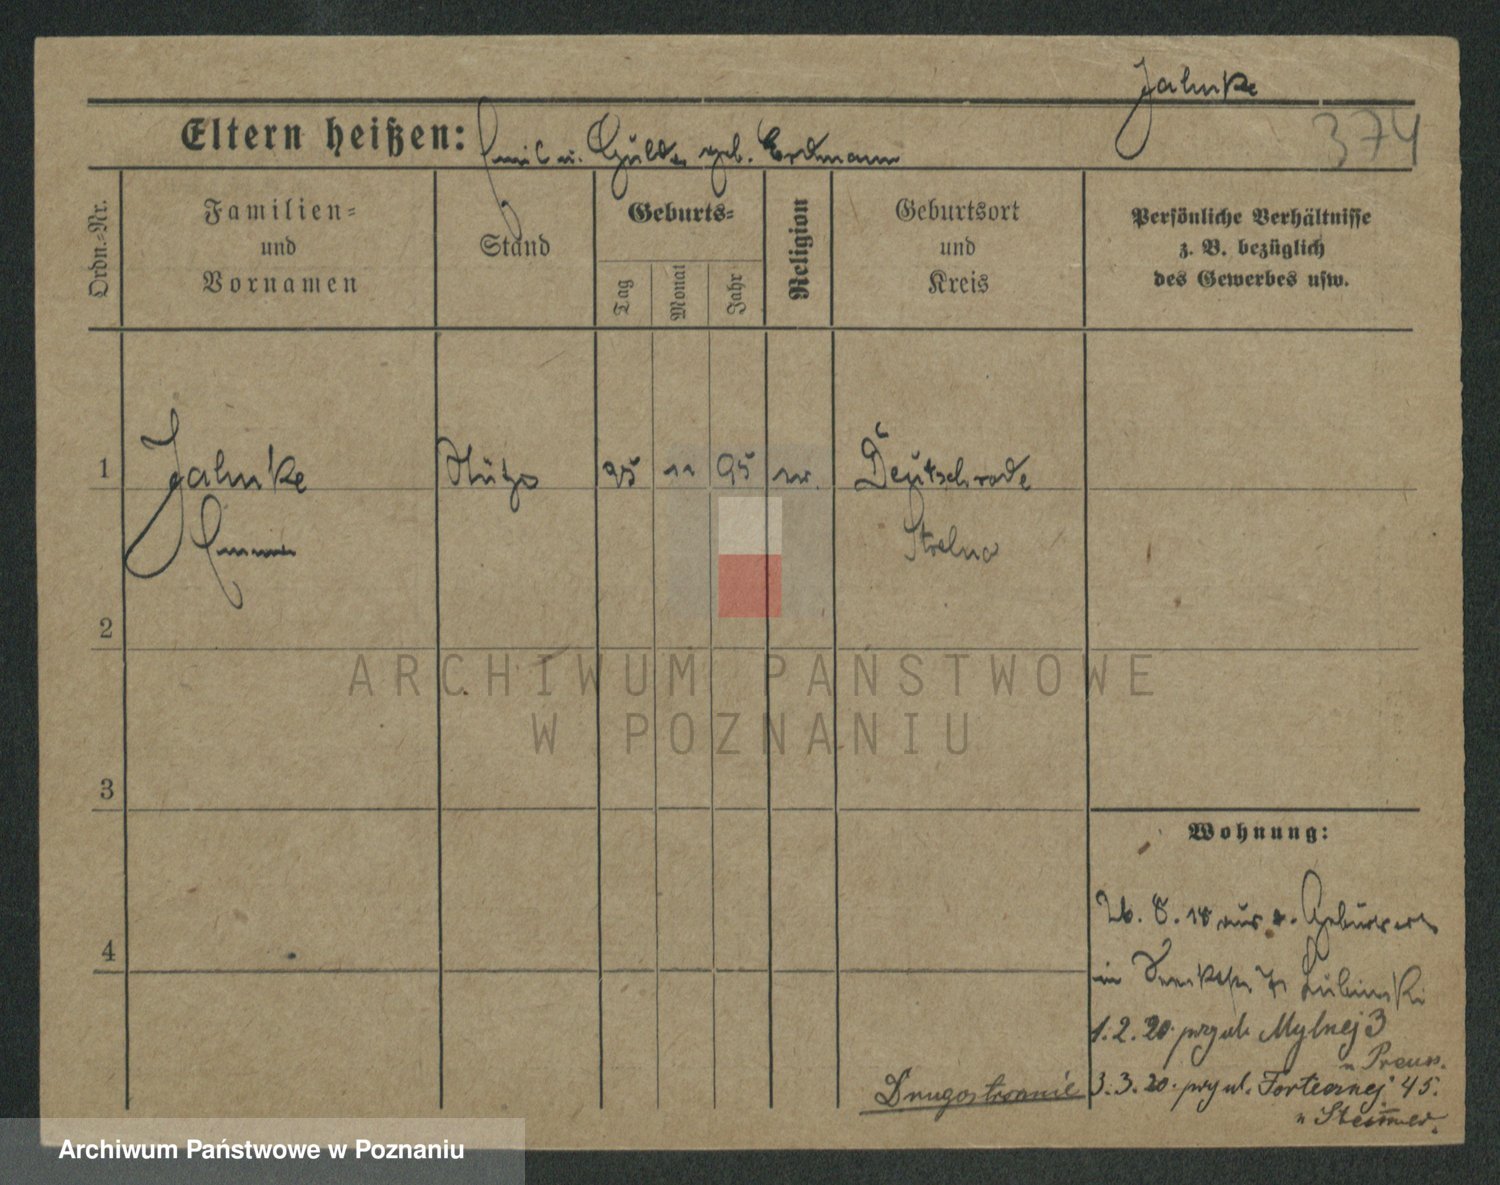 Jahnke
374
Eltern heißen: Emil u. Hulda geb. Erdmann
Ordn.-Nr.
Familien-
und
Vornamen
Stand
Geburts-
Tag
Monat
Jahr
Religion
Geburtsort
und
Kreis
Persönliche Verhältnisse
z. B. bezüglich
des Gewerbes usw.
1
Jahnke
Emma
25 11 95
Deutschrode
Strelno
2
3
4
Wohnung:
26. 8. 18
Lubinski
1.2.20. przy ul. Mylnej 3
u Preuss.
3.3.20. przy ul. Fortecznej 45.
Drugostronnie
ARCHIWUM PAŃSTWOWE
W POZNANIU
Archiwum Państwowe w Poznaniu